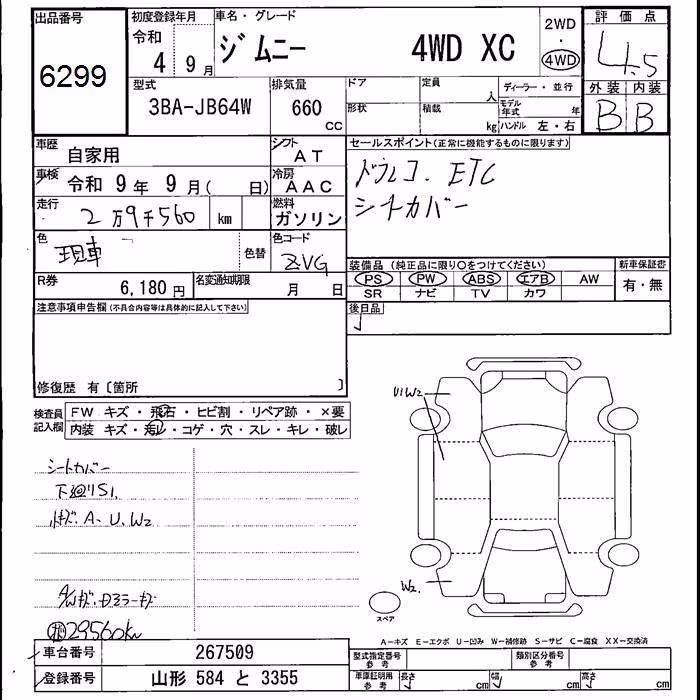 出品番号
6299
初度登録年月
令和
4年 9月
車名・グレード
ジムニー 4WD XC
2WD
・
4WD
評価点
4.5
外装 内装
B B
型式
3BA-JB64W
排気量
660
cc
ドア
形状
定員
人
積載
kg
ディーラー・並行
モデル年式
年
ハンドル 左・右
車歴
自家用
シフト
AT
車検 令和 9年 9月( 日)
冷房
AAC
走行
2万9千560 km
燃料
ガソリン
色
現車
色替
色コード
ZVG
R券
6,180円
名変通知期限
月 日
セールスポイント(正常に機能するものに限ります)
ドラレコ. ETC
シートカバー
装備品(純正品に限り○をつけてください)
PS PW ABS エアB AW
SR ナビ TV カワ
新車保証書
有・無
後日品
注意事項申告欄(不具合内容等は具体的に記入して下さい)
修復歴 有〔箇所 〕
検査員
記入欄
FW キズ・飛石・ヒビ割・リペア跡・×要
内装 キズ・汚レ・コゲ・穴・スレ・キレ・破レ
シートカバー
下廻りS1.
小キズ. A、U、W2
A/Wキズ・Dミラーキズ
29560km
U1W2
W2
スペア
A-キズ E-エクボ U-凹み W-補修跡 S-サビ C-腐食 XX-交換済
車台番号
267509
登録番号
山形 584 と 3355
型式指定番号
参考
類別区分番号
参考
車庫証明用
参考
長さ
cm
幅
cm
高さ
cm